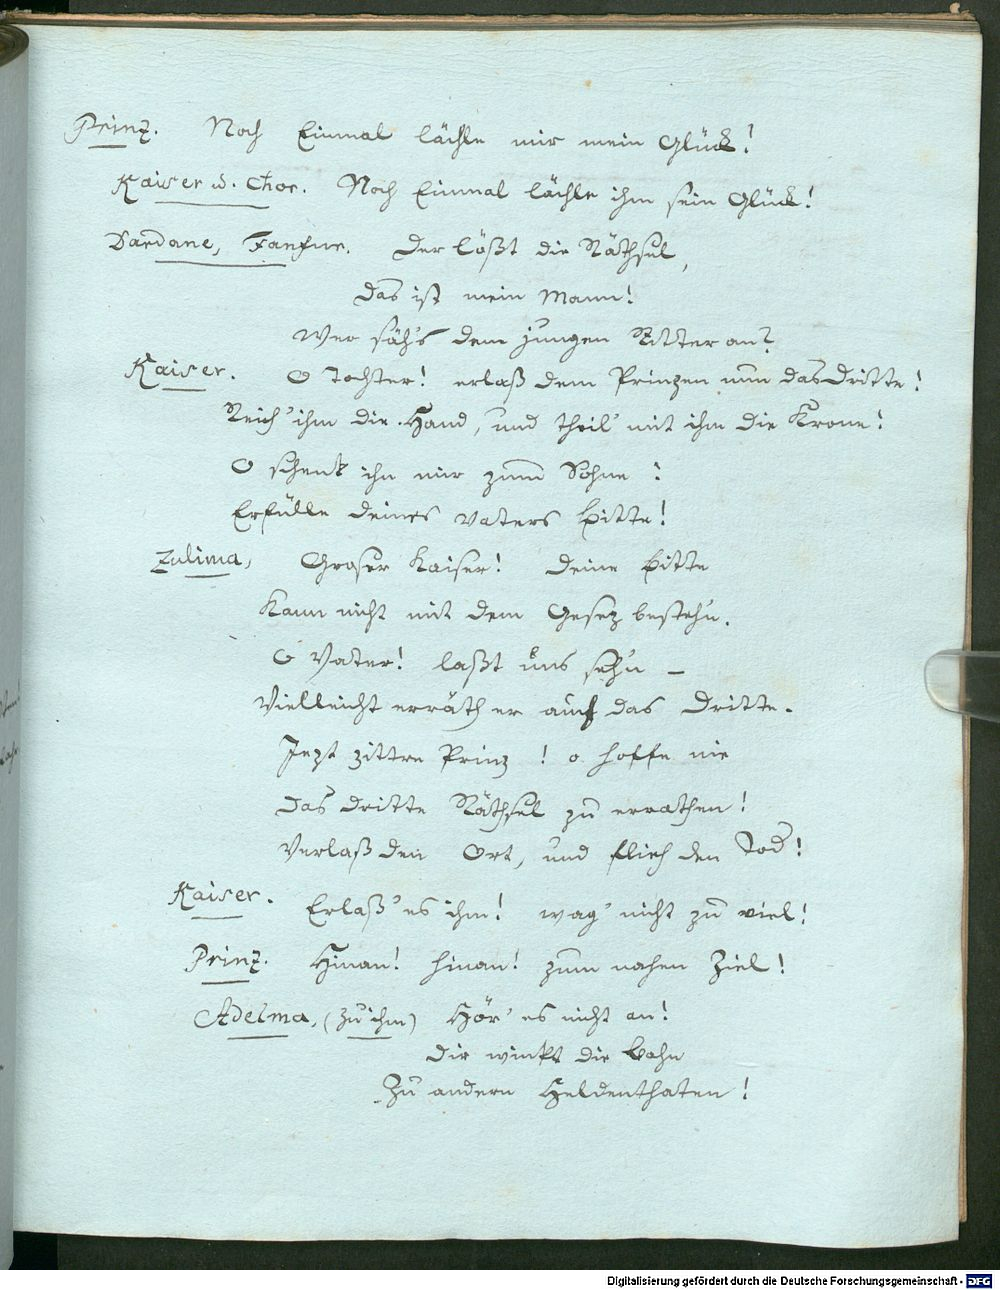 Prinz. Noch Einmal lächle mir mein Glück!
Kaiser u. Chor. Noch Einmal lächle ihm sein Glück!
Dardane, Tanfur. Der lößt die Räthsel,
Das ist mein Mann!
Wer säh's dem jungen Ritter an?
Kaiser. O Tochter! erlaß dem Prinzen nun das Dritte!
Reich' ihm die Hand, und theil' mit ihm die Krone!
O schenk ihn mir zum Sohne!
Erfülle deines Vaters Bitte!
Zulima, Groser Kaiser! Deine Bitte
Kann nicht mit dem Gesez bestehn.
O Vater! laßt uns sehn —
Vielleicht erräth er auch das Dritte.
Jezt zittre Prinz! o hoffe nie
Das dritte Räthsel zu errathen!
Verlaß den Ort, und flieh den Tod!
Kaiser. Erlaß' es ihm! wag' nicht zu viel!
Prinz. Hinan! hinan! zum nahen Ziel!
Adelma, (zu ihm) Hör' es nicht an!
Dir winkt die Bahn
Zu andern Heldenthaten!
Digitalisierung gefördert durch die Deutsche Forschungsgemeinschaft - DFG